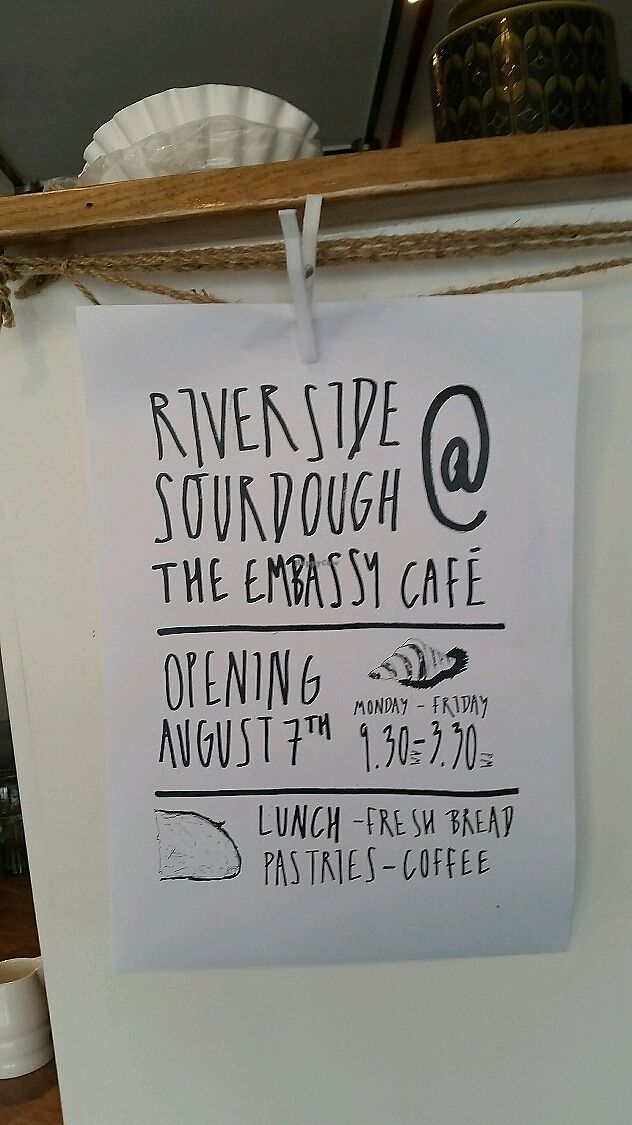 RIVERSIDE @
SOURDOUGH
THE EMBASSY CAFÉ
OPENING
AUGUST 7TH
MONDAY - FRIDAY
9.30AM-3.30PM
LUNCH -FRESH BREAD
PASTRIES-COFFEE